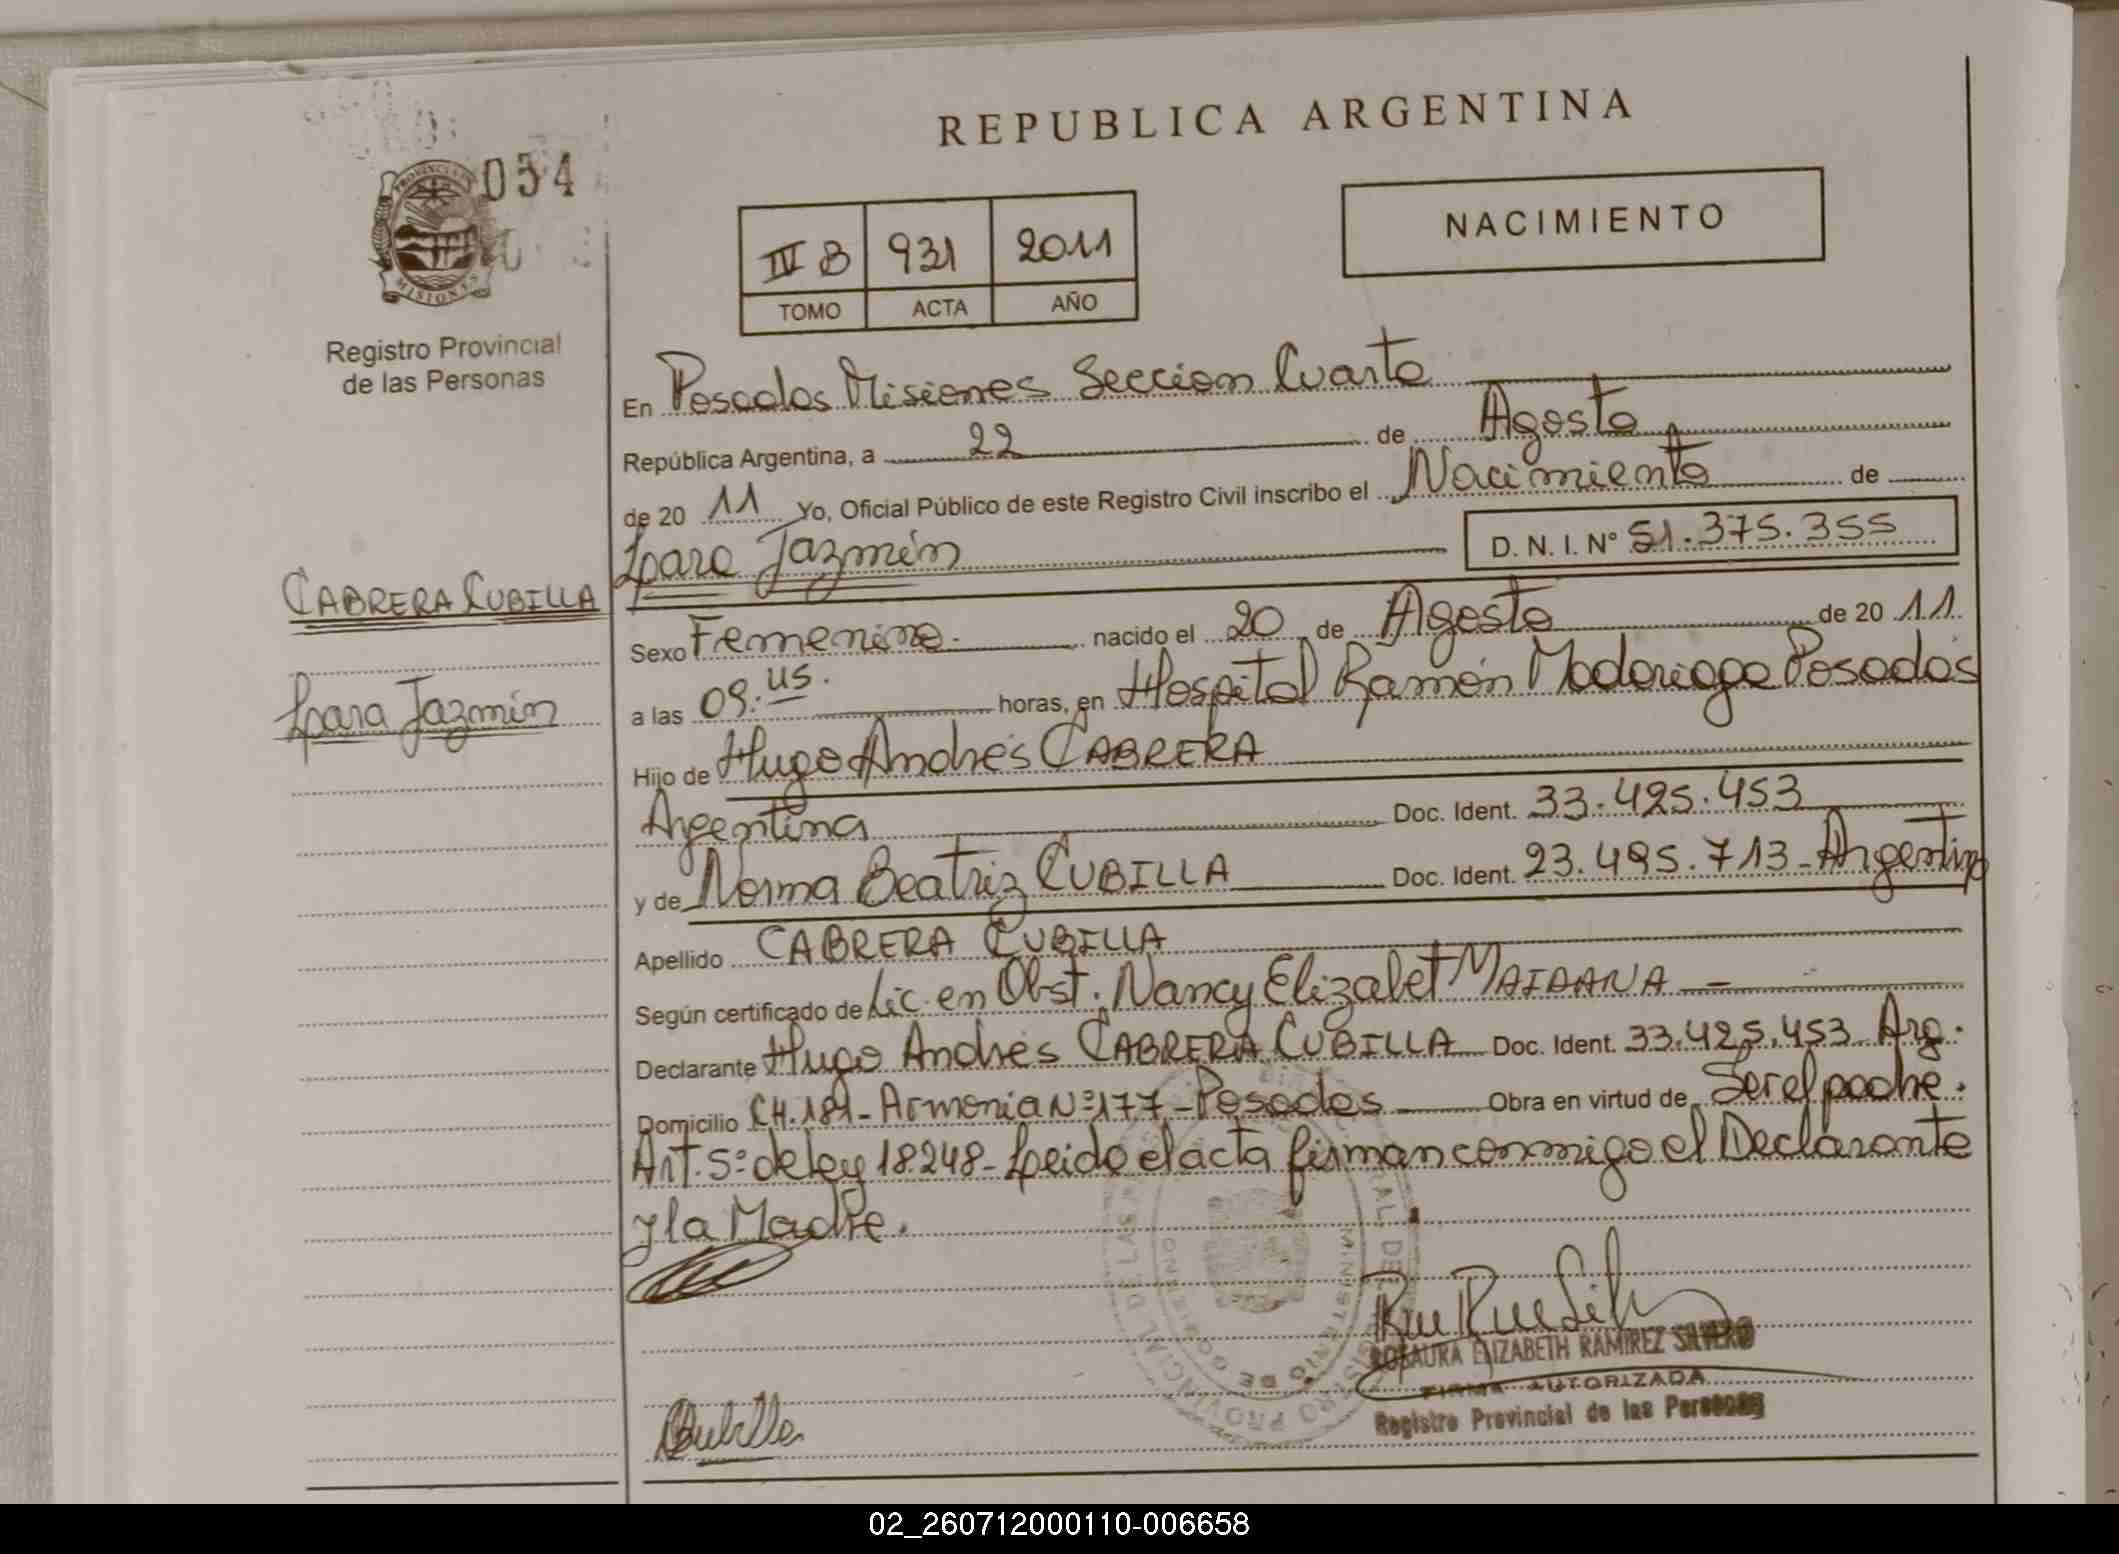 REPUBLICA ARGENTINA
054
PROVINCIA DE MISIONES
Registro Provincial
de las Personas
IV B 931 2011
TOMO ACTA AÑO
NACIMIENTO
En Posadas Misiones Seccion Cuarta
República Argentina, a 22 de Agosto
de 20 11 Yo, Oficial Público de este Registro Civil inscribo el Nacimiento de
Lara Jazmín D. N. I. N° 51.375.355
CABRERA CUBILLA
Lara Jazmín
Sexo Femenino. nacido el 20 de Agosto de 20 11.
a las 09:45. horas, en Hospital Ramón Madariaga Posadas
Hijo de Hugo Andrés CABRERA
Argentina Doc. Ident. 33.425.453
y de Norma Beatriz CUBILLA Doc. Ident. 23.495.713-Argentina
Apellido CABRERA CUBILLA
Según certificado de Lic. en Obst. Nancy Elizabet MAIDANA
Declarante Hugo Andrés CABRERA CUBILLA Doc. Ident. 33.425.453 Arg.
Domicilio CH.181-Armonia Nº177-Posadas Obra en virtud de Ser el padre.
Art. 5º de ley 18.248- Leido el acta firman conmigo el Declarante
y la Madre.
ROSAURA ELIZABETH RAMIREZ
FIRMA AUTORIZADA
Registro Provincial de las Personas
Cubilla
02_260712000110-006658